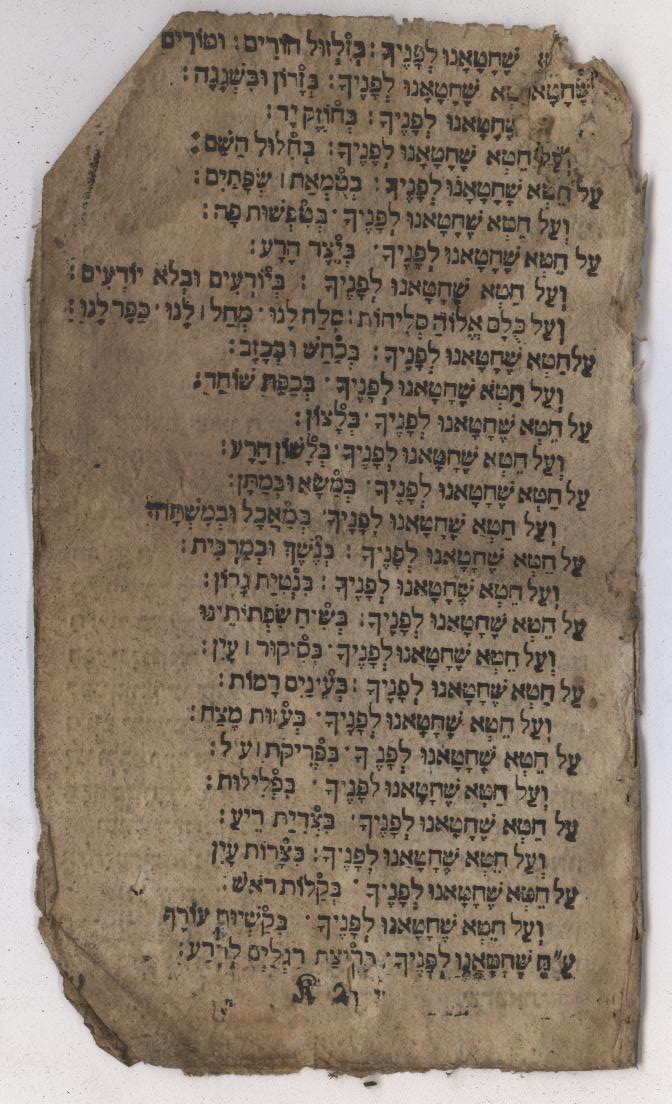 שֶׁחָטָאנוּ לְפָנֶיךָ : בְּזִלְזוּל הוֹרִים : וּמוֹרִים
שֶׁחָטָאנוּ לְפָנֶיךָ : בְּזָדוֹן וּבִשְׁגָגָה :
שֶׁחָטָאנוּ לְפָנֶיךָ : בְּחוֹזֶק יָד :
וְעַל חֵטְא שֶׁחָטָאנוּ לְפָנֶיךָ : בְּחִלּוּל הַשֵּׁם :
עַל חֵטְא שֶׁחָטָאנוּ לְפָנֶיךָ : בְּטֻמְאַת שְׂפָתַיִם :
וְעַל חֵטְא שֶׁחָטָאנוּ לְפָנֶיךָ · בְּטִפְשׁוּת פֶּה :
עַל חֵטְא שֶׁחָטָאנוּ לְפָנֶיךָ · בְּיֵצֶר הָרָע :
וְעַל חֵטְא שֶׁחָטָאנוּ לְפָנֶיךָ : בְּיוֹדְעִים וּבְלֹא יוֹדְעִים :
וְעַל כֻּלָּם אֱלוֹהַּ סְלִיחוֹת : סְלַח לָנוּ · מְחַל לָנוּ · כַּפֶּר לָנוּ :
עַל חֵטְא שֶׁחָטָאנוּ לְפָנֶיךָ : בְּכַחַשׁ וּבְכָזָב :
וְעַל חֵטְא שֶׁחָטָאנוּ לְפָנֶיךָ · בְּכַפַּת שׁוֹחַד :
עַל חֵטְא שֶׁחָטָאנוּ לְפָנֶיךָ · בְּלָצוֹן :
וְעַל חֵטְא שֶׁחָטָאנוּ לְפָנֶיךָ · בְּלָשׁוֹן הָרָע :
עַל חֵטְא שֶׁחָטָאנוּ לְפָנֶיךָ · בְּמַשָּׂא וּבְמַתָּן :
וְעַל חֵטְא שֶׁחָטָאנוּ לְפָנֶיךָ · בְּמַאֲכָל וּבְמִשְׁתֶּה
עַל חֵטְא שֶׁחָטָאנוּ לְפָנֶיךָ : בְּנֶשֶׁךְ וּבְמַרְבִּית :
וְעַל חֵטְא שֶׁחָטָאנוּ לְפָנֶיךָ : בִּנְטִיַת גָרוֹן :
עַל חֵטְא שֶׁחָטָאנוּ לְפָנֶיךָ : בְּשִׂיחַ שִׂפְתוֹתֵינוּ
וְעַל חֵטְא שֶׁחָטָאנוּ לְפָנֶיךָ · בְּסִיקוּר עָיִן :
עַל חֵטְא שֶׁחָטָאנוּ לְפָנֶיךָ : בְּעֵינַיִם רָמוֹת :
וְעַל חֵטְא שֶׁחָטָאנוּ לְפָנֶיךָ · בְּעַזּוּת מֶצַח :
עַל חֵטְא שֶׁחָטָאנוּ לְפָנֶיךָ · בִּפְרִיקַת עֹל :
וְעַל חֵטְא שֶׁחָטָאנוּ לְפָנֶיךָ · בִּפְלִילוּת :
עַל חֵטְא שֶׁחָטָאנוּ לְפָנֶיךָ · בִּצְדִיַת רֵיעַ :
וְעַל חֵטְא שֶׁחָטָאנוּ לְפָנֶיךָ : בְּצָרוּת עָיִן
עַל חֵטְא שֶׁחָטָאנוּ לְפָנֶיךָ · בְּקַלּוּת רֹאשׁ :
וְעַל חֵטְא שֶׁחָטָאנוּ לְפָנֶיךָ · בְּקַשְׁיוּת עוֹרֶף
ע״ח שֶׁחָטָאנוּ לְפָנֶיךָ · בְּרִיצַת רַגְלַיִם לְהָרַע :